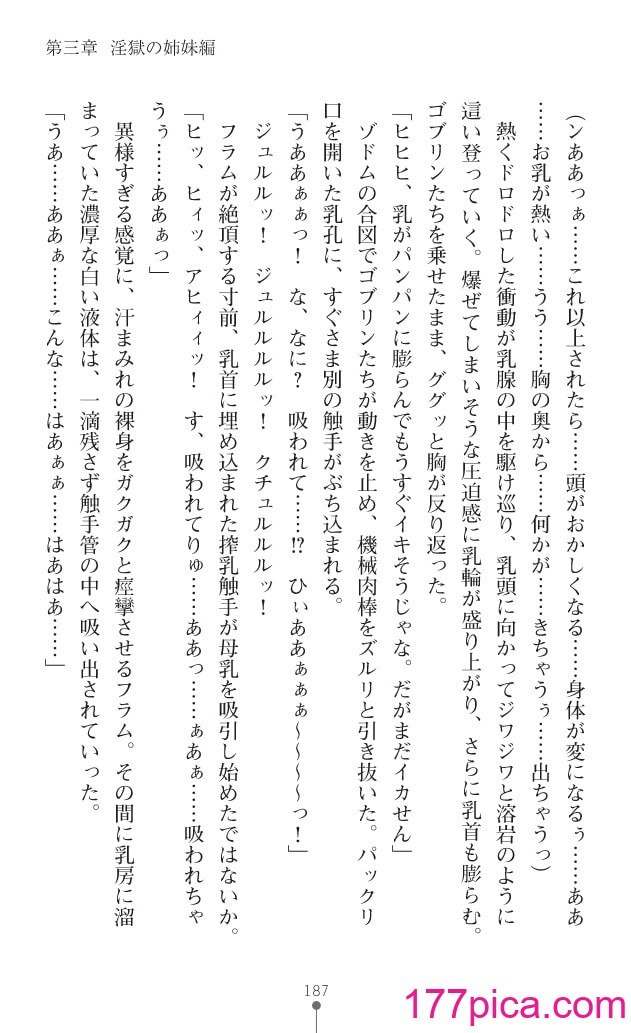 第三章　淫獄の姉妹編
（ンああっぁ……これ以上されたら……頭がおかしくなる……身体が変になるぅ……ああ
……お乳が熱い……うう……胸の奥から……何かが……きちゃうぅ……出ちゃうっ）
　熱くドロドロした衝動が乳腺の中を駆け巡り、乳頭に向かってジワジワと溶岩のように
這い登っていく。爆ぜてしまいそうな圧迫感に乳輪が盛り上がり、さらに乳首も膨らむ。
ゴブリンたちを乗せたまま、ググッと胸が反り返った。
「ヒヒヒ、乳がパンパンに膨らんでもうすぐイキそうじゃな。だがまだイカせん」
　ゾドムの合図でゴブリンたちが動きを止め、機械肉棒をズルリと引き抜いた。パックリ
口を開いた乳孔に、すぐさま別の触手がぶち込まれる。
「うああぁぁっ！　な、なに？　吸われて……!?　ひぃああぁぁぁ～～～～っ！」
　ジュルルッ！　ジュルルルルッ！　クチュルルルッ！
　フラムが絶頂する寸前、乳首に埋め込まれた搾乳触手が母乳を吸引し始めたではないか。
「ヒッ、ヒィッ、アヒィィッ！　す、吸われてりゅ……ああっ……ぁあぁ……吸われちゃ
うぅ……ああぁっ」
　異様すぎる感覚に、汗まみれの裸身をガクガクと痙攣させるフラム。その間に乳房に溜
まっていた濃厚な白い液体は、一滴残さず触手管の中へ吸い出されていった。
「うあ……ああぁ……こんな……はあぁぁ……はあはあ……」
187
177pica.com